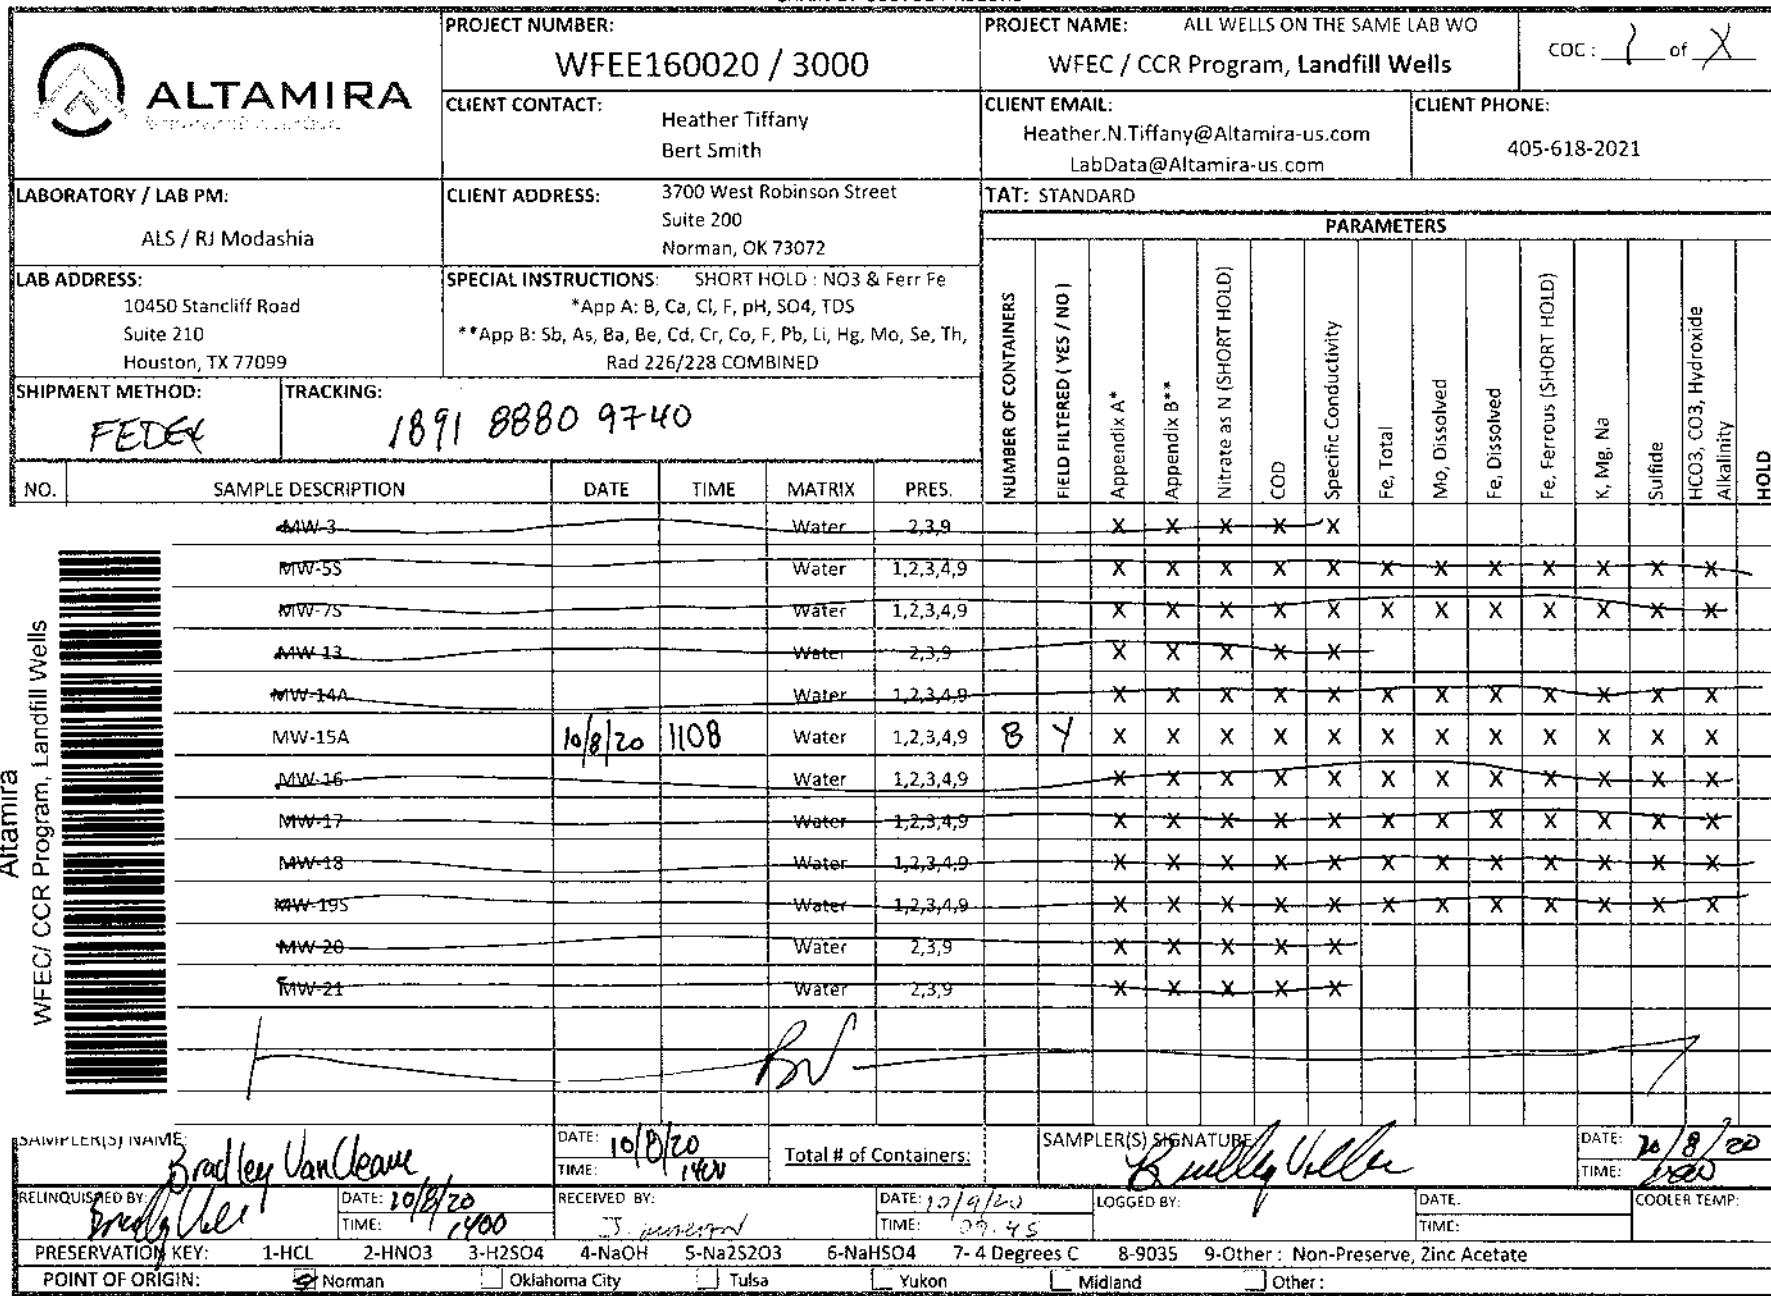 ALTAMIRA
PROJECT NUMBER:
WFEE160020 / 3000
PROJECT NAME: ALL WELLS ON THE SAME LAB WO
WFEC / CCR Program, Landfill Wells
COC : 1 of X
CLIENT CONTACT:
Heather Tiffany
Bert Smith
CLIENT EMAIL:
Heather.N.Tiffany@Altamira-us.com
LabData@Altamira-us.com
CLIENT PHONE:
405-618-2021
LABORATORY / LAB PM:
ALS / RJ Modashia
CLIENT ADDRESS: 3700 West Robinson Street
Suite 200
Norman, OK 73072
TAT: STANDARD
PARAMETERS
LAB ADDRESS:
10450 Stancliff Road
Suite 210
Houston, TX 77099
SPECIAL INSTRUCTIONS: SHORT HOLD : NO3 & Ferr Fe
*App A: B, Ca, Cl, F, pH, SO4, TDS
**App B: Sb, As, Ba, Be, Cd, Cr, Co, F, Pb, Li, Hg, Mo, Se, Th,
Rad 226/228 COMBINED
SHIPMENT METHOD:
FEDEX
TRACKING:
1891 8880 9740
NUMBER OF CONTAINERS
FIELD FILTERED ( YES / NO )
Appendix A*
Appendix B**
Nitrate as N (SHORT HOLD)
COD
Specific Conductivity
Fe, Total
Mo, Dissolved
Fe, Dissolved
Fe, Ferrous (SHORT HOLD)
K, Mg, Na
Sulfide
HCO3, CO3, Hydroxide
Alkalinity
HOLD
NO. SAMPLE DESCRIPTION DATE TIME MATRIX PRES.
MW-3 Water 2,3,9 X X X X X
MW-5S Water 1,2,3,4,9 X X X X X X X X X X X X
MW-7S Water 1,2,3,4,9 X X X X X X X X X X X X
MW-13 Water 2,3,9 X X X X X
MW-14A Water 1,2,3,4,9 X X X X X X X X X X X X
MW-15A 10/8/20 1108 Water 1,2,3,4,9 8 Y X X X X X X X X X X X X
MW-16 Water 1,2,3,4,9 X X X X X X X X X X X X
MW-17 Water 1,2,3,4,9 X X X X X X X X X X X X
MW-18 Water 1,2,3,4,9 X X X X X X X X X X X X
MW-19S Water 1,2,3,4,9 X X X X X X X X X X X X
MW-20 Water 2,3,9 X X X X X
MW-21 Water 2,3,9 X X X X X
BV
Altamira
WFEC/ CCR Program, Landfill Wells
SAMPLER(S) NAME:
Bradley VanCleave
DATE: 10/8/20
TIME: 1400
Total # of Containers:
SAMPLER(S) SIGNATURE
DATE: 10/8/20
TIME:
RELINQUISHED BY:
DATE: 10/8/20
TIME: 1400
RECEIVED BY:
DATE: 10/9/20
TIME: 09:45
LOGGED BY:
DATE:
TIME:
COOLER TEMP:
PRESERVATION KEY: 1-HCL 2-HNO3 3-H2SO4 4-NaOH 5-Na2S2O3 6-NaHSO4 7- 4 Degrees C 8-9035 9-Other : Non-Preserve, Zinc Acetate
POINT OF ORIGIN: Norman Oklahoma City Tulsa Yukon Midland Other :